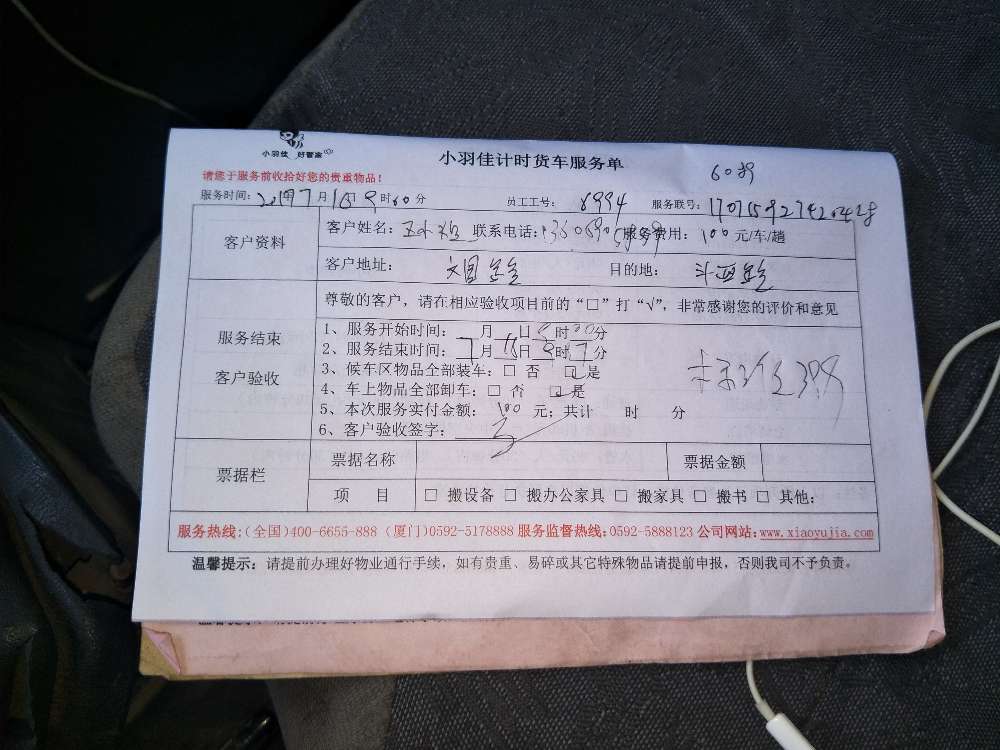 小羽佳 好管家
小羽佳计时货车服务单
请您于服务前收拾好您的贵重物品！
服务时间： 年7月 日9时00分 员工工号： 6994 服务联号：
客户资料
客户姓名： 联系电话： 服务费用：100元/车/趟
客户地址： 目的地：
服务结束
客户验收
尊敬的客户，请在相应验收项目前的“□”打“√”，非常感谢您的评价和意见
1、服务开始时间： 月 日 时 分
2、服务结束时间：7月 日9时 分
3、候车区物品全部装车：□ 否 ☑是
4、车上物品全部卸车：□ 否 ☑是
5、本次服务实付金额：100 元；共计 时 分
6、客户验收签字：
票据栏
票据名称 票据金额
项 目 □ 搬设备 □ 搬办公家具 □ 搬家具 □ 搬书 □ 其他：
服务热线：(全国)400-6655-888 (厦门)0592-5178888 服务监督热线：0592-5888123 公司网站：www.xiaoyujia.com
温馨提示：请提前办理好物业通行手续，如有贵重、易碎或其它特殊物品请提前申报，否则我司不予负责。